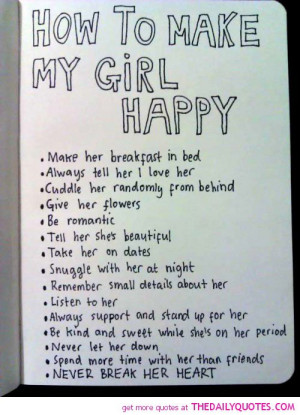 HOW TO MAKE
MY GiRL
HAPPY
• Make her breakfast in bed
• Always tell her I love her
• Cuddle her randomly from behind
• Give her flowers
• Be romantic
• Tell her she's beautiful
• Take her on dates
• Snuggle with her at night
• Remember small details about her
• Listen to her
• Always support and stand up for her
• Be kind and sweet while she's on her period
• Never let her down
• Spend more time with her than friends
• NEVER BREAK HER HEART
get more quotes at THEDAILYQUOTES.COM